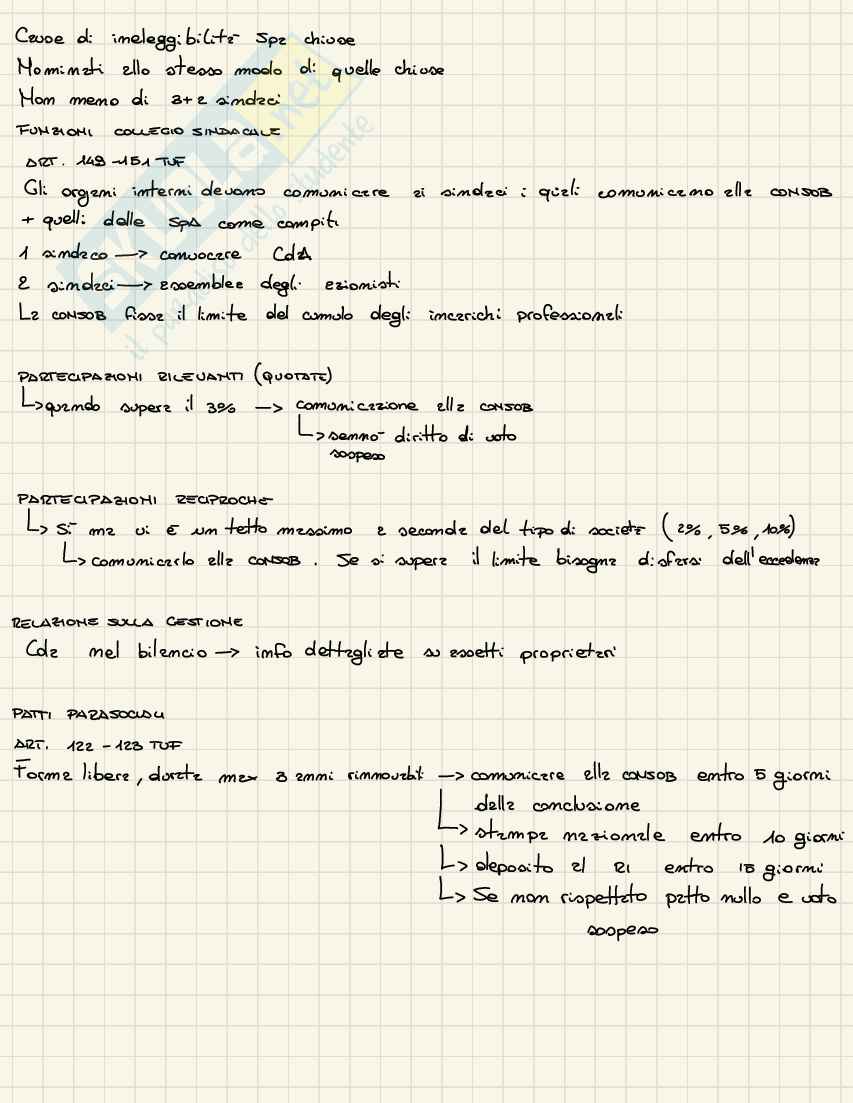 Cause di ineleggibilità Spa chiuse
Nominati allo stesso modo di quelle chiuse
Non meno di 3+2 sindaci
FUNZIONI COLLEGIO SINDACALE
ART. 149-151 TUF
Gli organi interni devono comunicare ai sindaci i quali comunicano alla CONSOB
+ quelli delle SpA come compiti
1 sindaco → convocare CdA
2 sindaci → assemblee degli azionisti
La CONSOB fissa il limite del cumulo degli incarichi professionali
PARTECIPAZIONI RILEVANTI (QUOTATE)
↳ quando supera il 3% → comunicazione alla CONSOB
↳ sennò diritto di voto
sospeso
PARTECIPAZIONI RECIPROCHE
↳ Sì ma vi è un tetto massimo a seconda del tipo di società (2%, 5%, 10%)
↳ comunicarlo alla CONSOB. Se si supera il limite bisogna disfarsi dell'eccedenza
RELAZIONE SULLA GESTIONE
Cda nel bilancio → info dettagliate su assetti proprietari
PATTI PARASOCIALI
ART. 122-123 TUF
Forma libera, durata max 3 anni rinnovabili → comunicare alla CONSOB entro 5 giorni
dalla conclusione
↳ stampa nazionale entro 10 giorni
↳ deposito al RI entro 15 giorni
↳ Se non rispettato patto nullo e voto
sospeso
SKUOLA.net
il paradiso dello studente